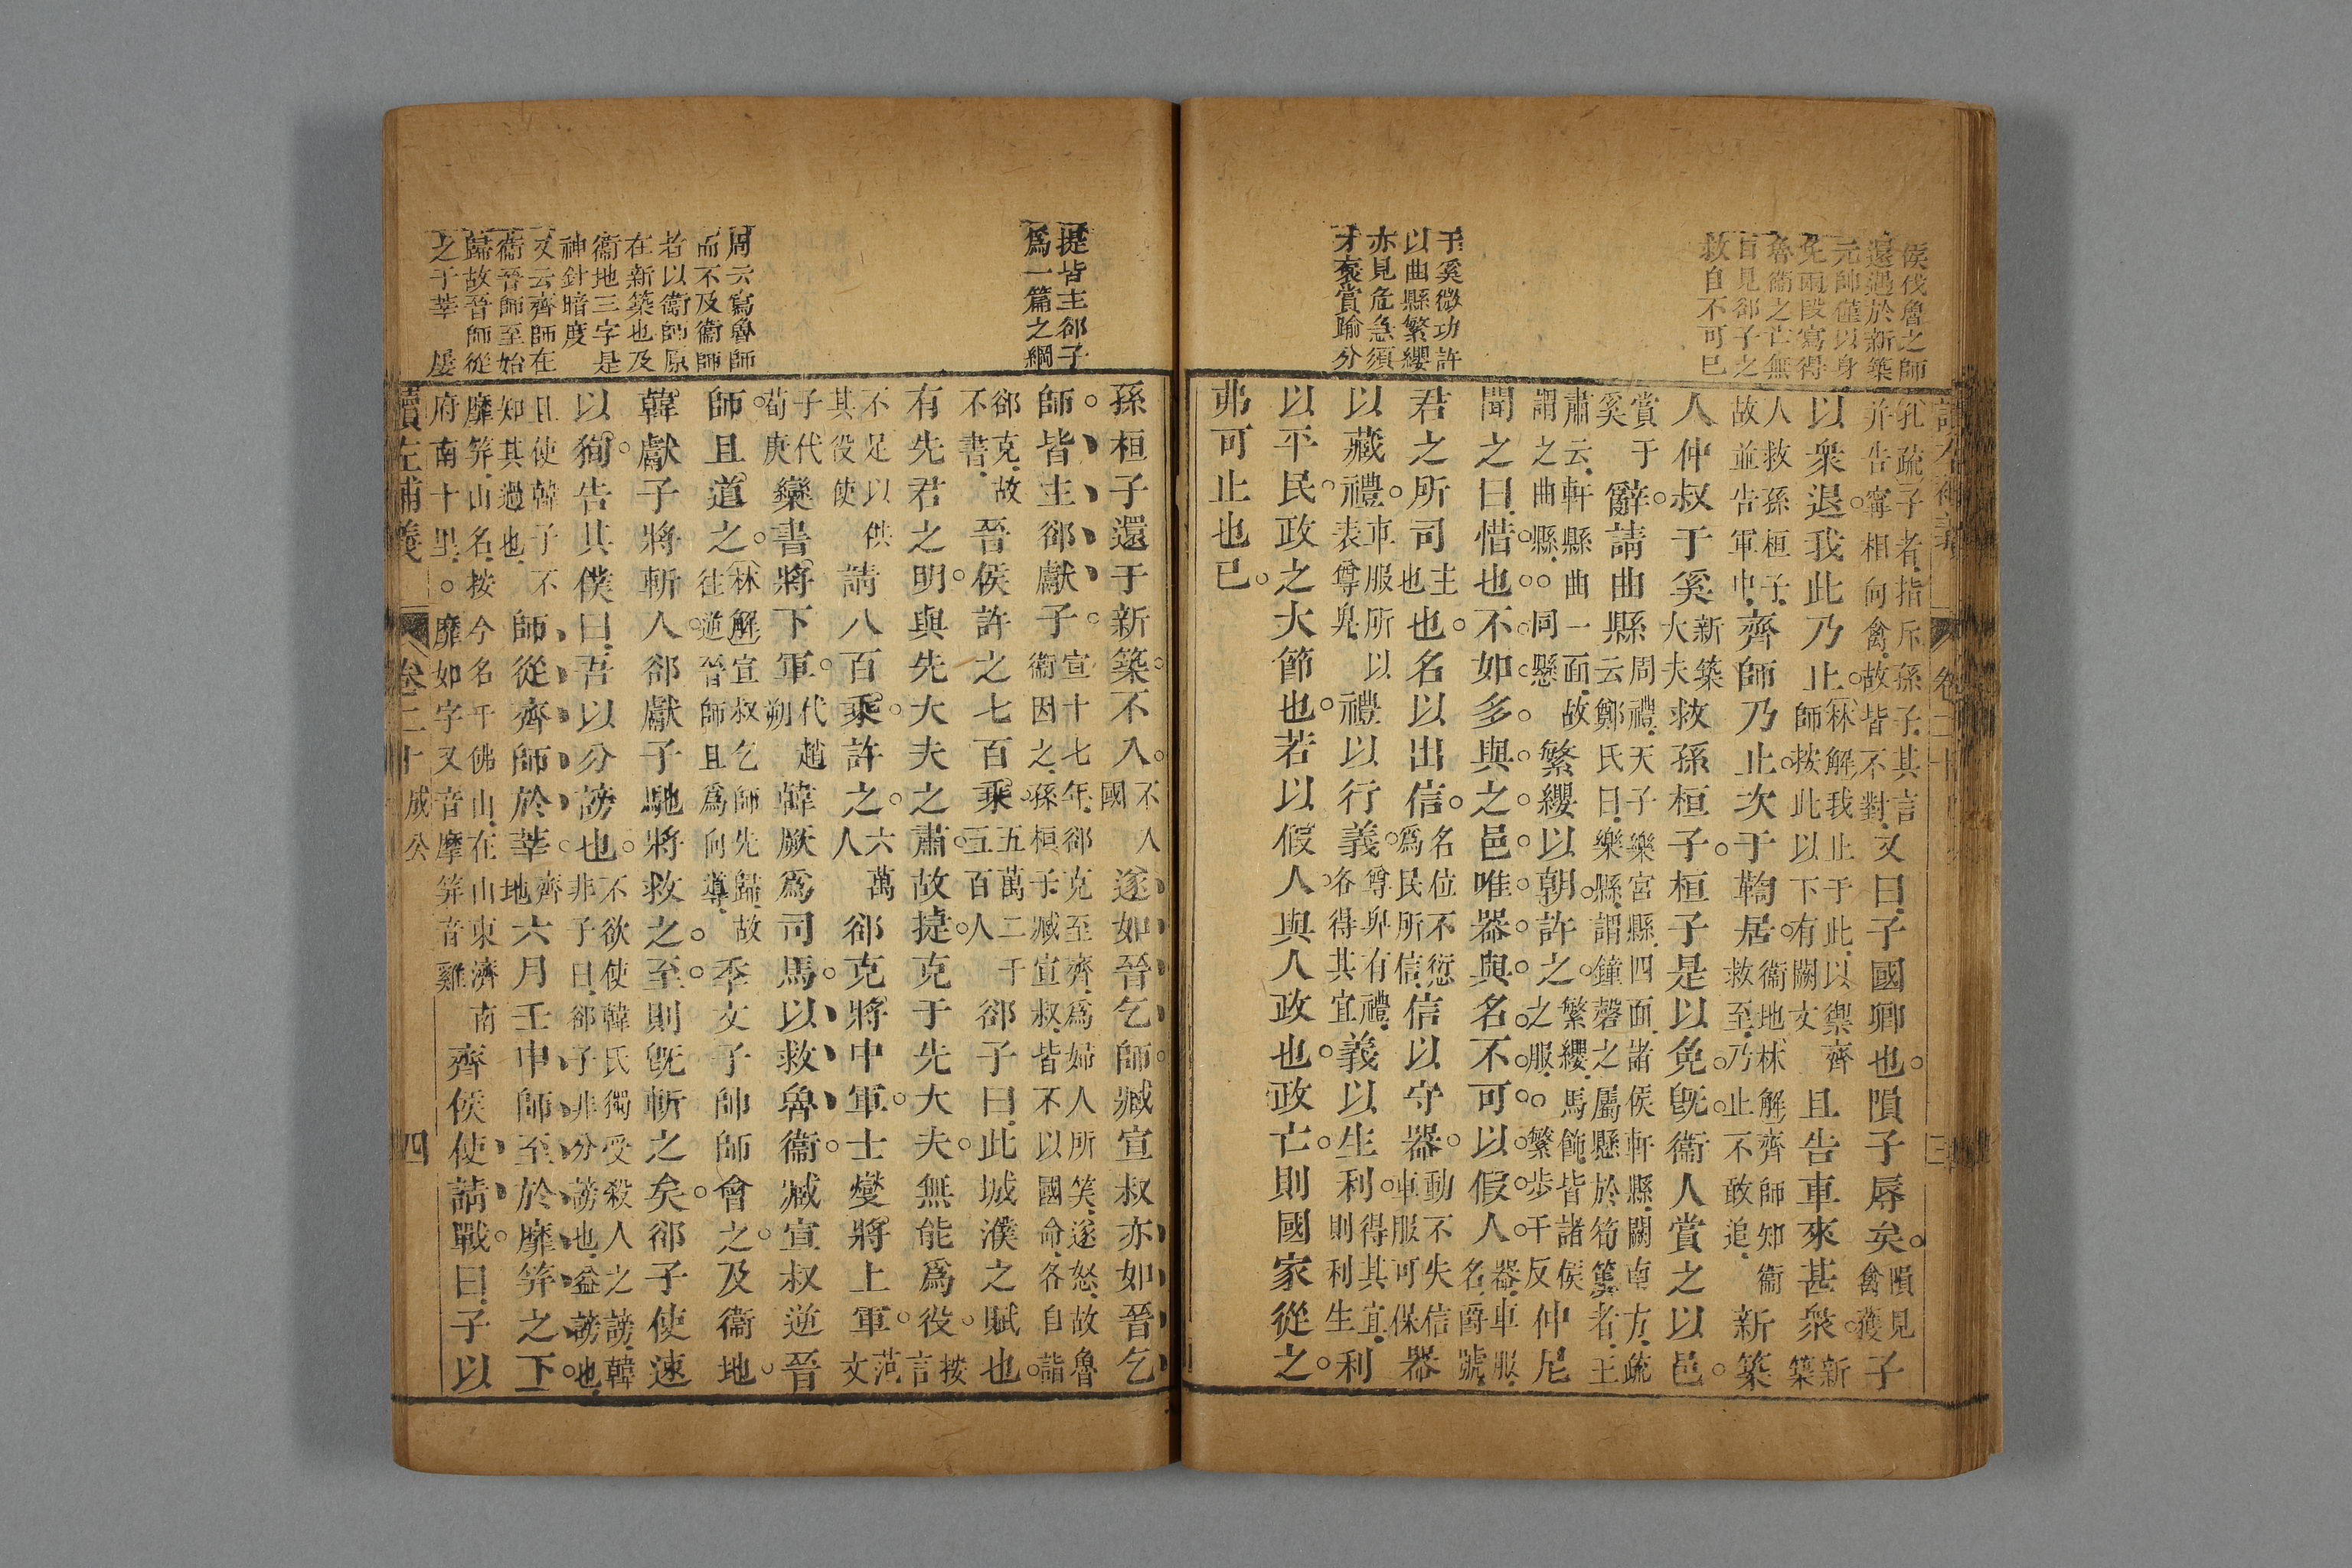 侯伐魯之師
還遇於新築
元帥僅以身
免兩段寫得
魯衞之亡無
日見郤子之
救自不可已
于奚微功許
以曲縣繁纓
亦見危急須
才裦賞踰分
讀左補義 卷二十 三
孔疏子者指斥孫子其言幷告甯相向禽故皆不對又曰子國卿也隕子辱矣隕見禽獲子
以衆退我此乃止林解我止于此以禦齊師按此以下有闕文且告車來甚衆新築
人救孫桓子故並告軍中齊師乃止次于鞫居衞地林解齊師知衞救至乃止不敢追新築
人仲叔于奚新築大夫救孫桓子桓子是以免旣衞人賞之以邑
賞于奚辭請曲縣周禮天子樂宮縣四面諸侯軒縣闕南方疏云鄭氏曰樂縣謂鐘磬之屬懸於筍簨者王
肅云軒縣曲一面故謂之曲縣○同懸繁纓以朝許之繁纓馬飾皆諸侯之服○繁步干反仲尼
聞之曰惜也不如多與之邑唯器與名不可以假人器車服名爵號
君之所司主也也名以出信名位不愆爲民所信信以守器動不失信車服可保器
以藏禮車服所以表尊卑禮以行義尊卑有禮各得其宜義以生利得其宜則利生利
以平民政之大節也若以假人與人政也政亡則國家從之
弗可止也已
提皆主郤子
爲一篇之綱
周云寫魯師
而不及衞師
者以衞師原
在新築也及
衞地三字是
神針暗度
又云齊師在
衞晉師至始
歸故晉師從
之于莘 屢
孫桓子還于新築不入不入國遂如晉乞師臧宣叔亦如晉乞
師皆主郤獻子宣十七年郤克至齊爲婦人所笑遂怒故魯衞因之孫桓子臧宣叔皆不以國命各自詣
郤克故不書晉侯許之七百乘五萬二千五百人郤子曰此城濮之賦也
有先君之明與先大夫之肅故捷克于先大夫無能爲役按言
不足以供其役使請八百乘許之六萬人郤克將中軍士燮將上軍范文
子代荀庚欒書將下軍代趙朔韓厥爲司馬以救魯衞臧宣叔逆晉
師且道之林解宣叔乞師先歸故往逆晉師且爲向導季文子帥師會之及衞地
韓獻子將斬人郤獻子馳將救之至則旣斬之矣郤子使速
以徇告其僕曰吾以分謗也不欲使韓氏獨受殺人之謗韓非子曰郤子非分謗也益謗也
且使韓子不知其過也師從齊師於莘齊地六月壬申師至於靡筓之下
靡筓山名按今名千佛山在山東濟南府南十里○靡如字又音摩筓音雞齊侯使請戰曰子以
讀左補義 卷二十 成公 四